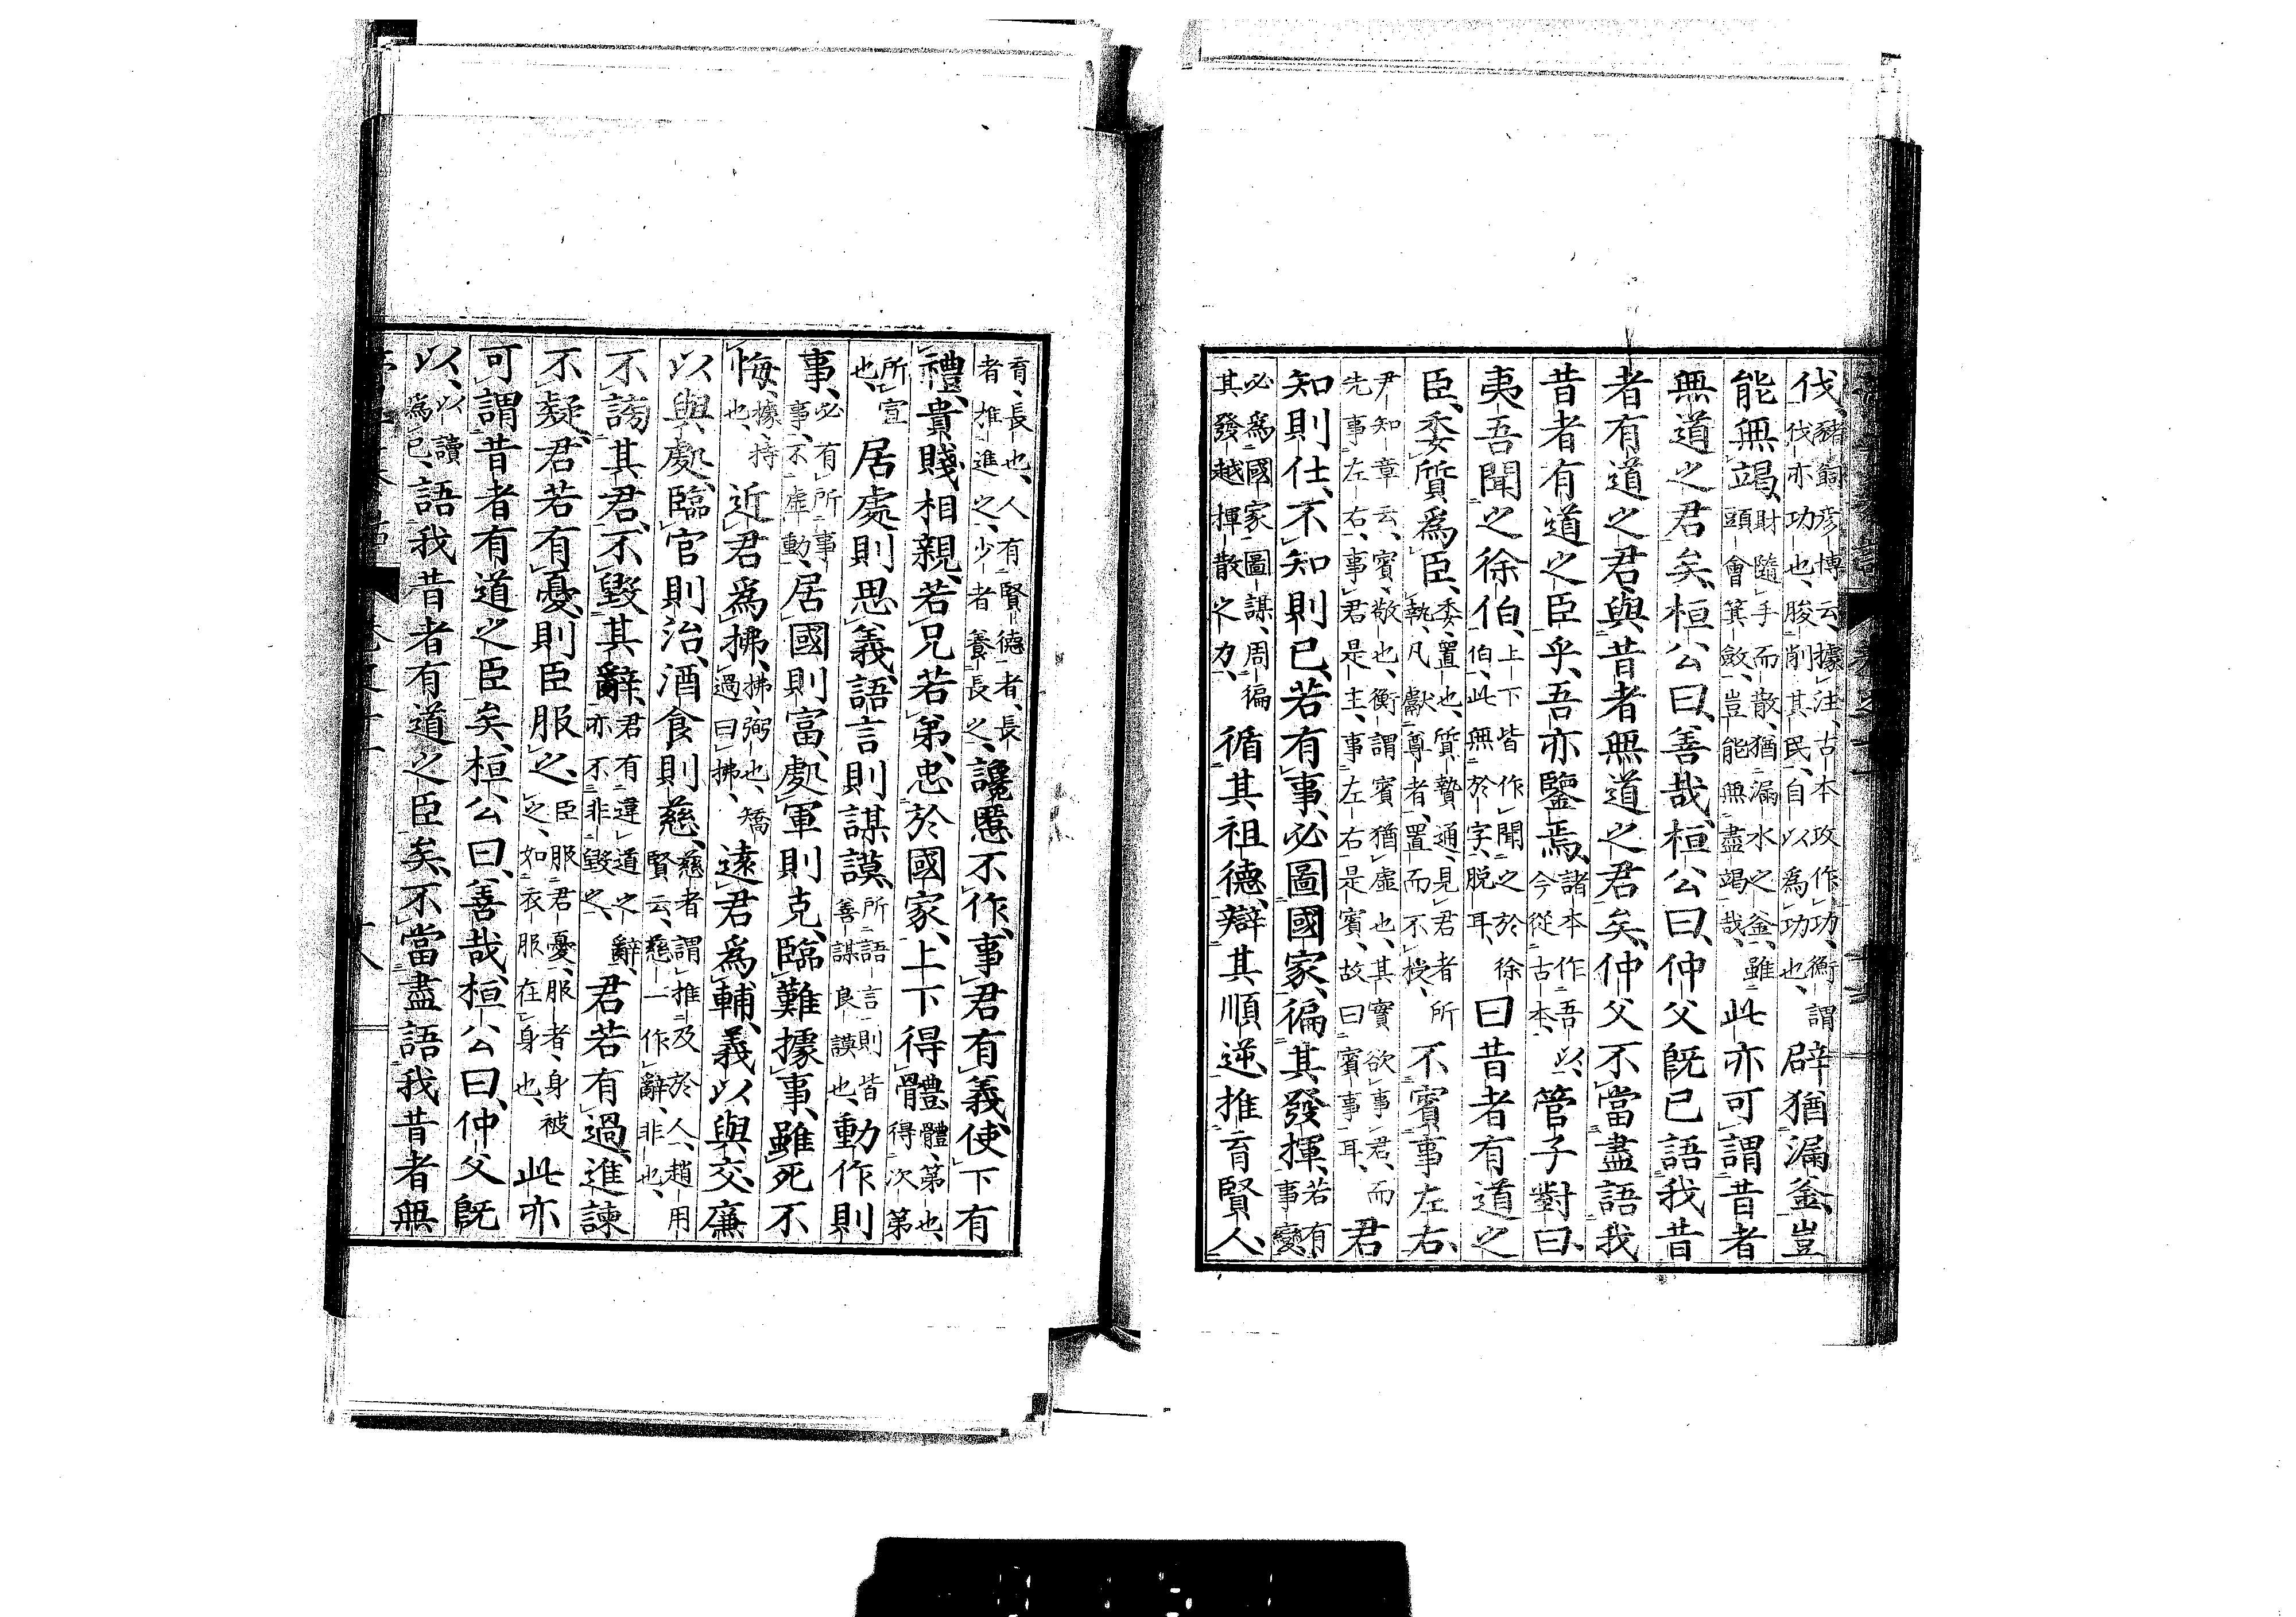 伐、豬飼彦博云、據注、古本攻作功、衡謂伐亦功也、朘削其民、自以為功也、辟猶漏釜、豈
能無竭、財隨手而散、猶漏水之釜、雖頭會箕斂、豈能無盡竭哉、此亦可謂昔者
無道之君矣、桓公曰、善哉、桓公曰、仲父既已語我昔
者有道之君、與昔者無道之君矣、仲父不當盡語我
昔者有道之臣乎、吾亦鑒焉、諸本作吾以、今從古本、管子對曰、
夷吾聞之徐伯、上下皆作聞之於徐伯、此無於字、脱耳、曰昔者有道之
臣、委質為臣、委、置也、質、贄通、見君者所執、凡獻尊者、置而不授、不賓事左右、
尹知章云、賓、敬也、衡謂賓猶虛也、其實欲事君、而先事左右、事君是主、事左右是賓、故曰賓事耳、君
知則仕、不知則已、若有事、必圖國家、徧其發揮、若有事變
必為國家圖謀、周徧其發越揮散之力、循其祖德、辯其順逆、推育賢人、
育、長也、人有賢德者、長者推進之、少者養長之、讒慝不作、事君有義、使下有
禮、貴賤相親、若兄若弟、忠於國家、上下得體、體、第也、得次第
所宣也、居處則思義、語言則謀謨、所語言則皆善謀良謨也、動作則
事、必有所事事、不虛動、居國則富、處軍則克、臨難據事、雖死不
悔、據、持也、近君為拂、拂、弼也、矯過曰拂、遠君為輔、義以與交、廉
以與處、臨官則治、酒食則慈、慈者謂推及於人、趙用賢云、慈一作辭、非也、
不謗其君、不毀其辭、君有違道之辭、亦不非毀之、君若有過、進諫
不疑、君若有憂、則臣服之、臣服君憂、服者、身被之、如衣服在身也、此亦
可謂昔者有道之臣矣、桓公曰、善哉、桓公曰、仲父既
以、以讀為已、語我昔者有道之臣矣、不當盡語我昔者無